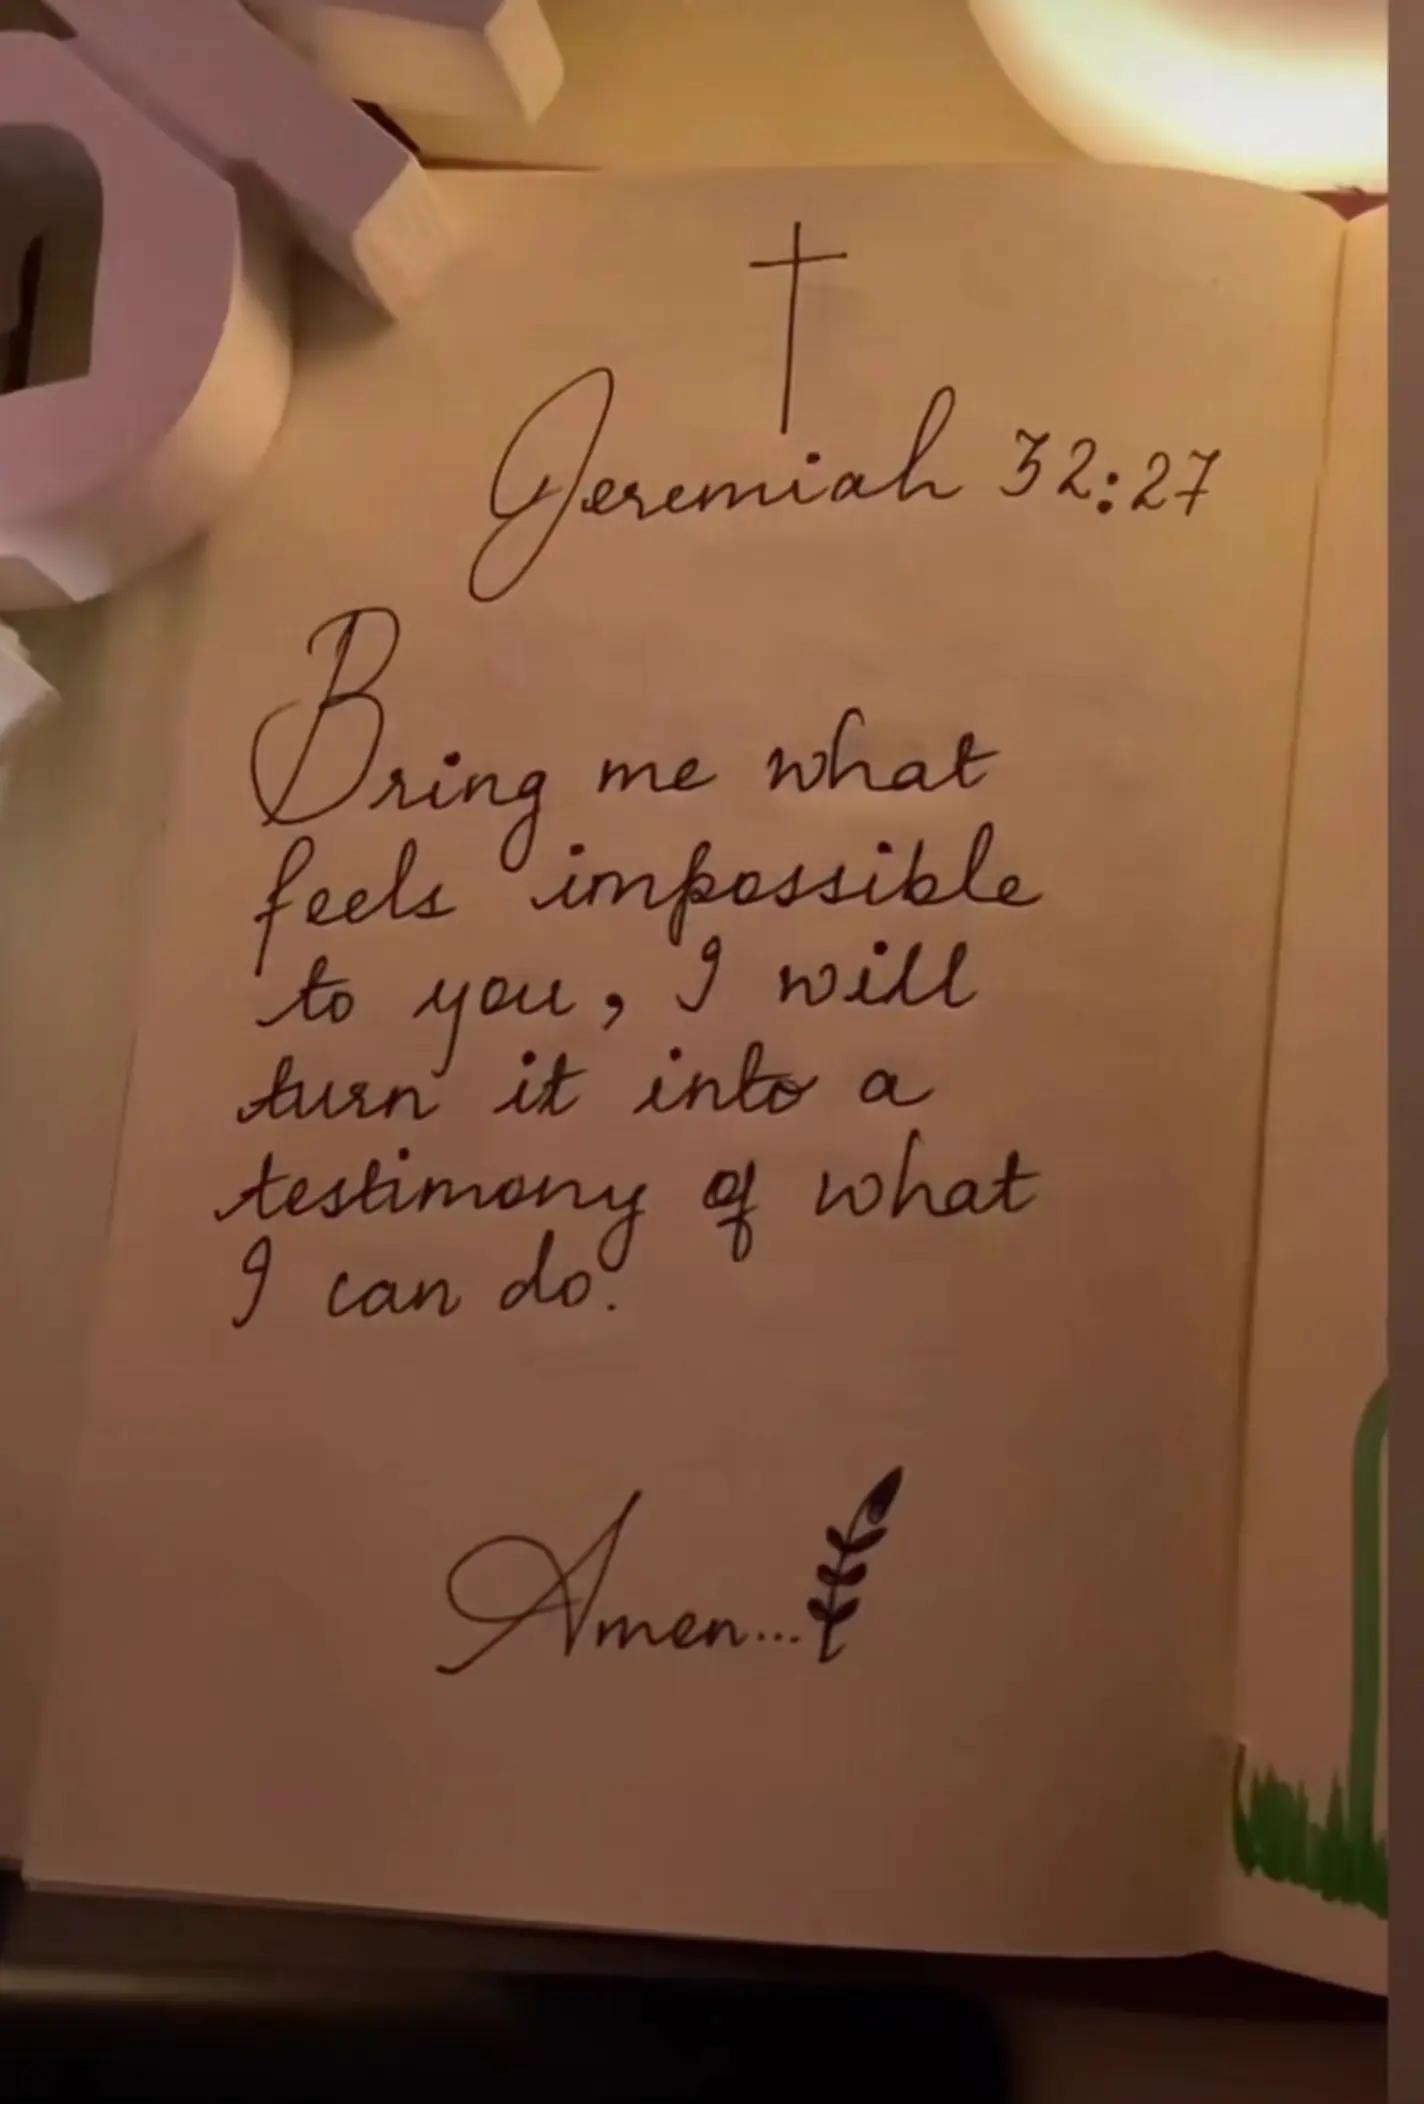 Jeremiah 32:27
Bring me what
feels impossible
to you, I will
turn it into a
testimony of what
I can do.
Amen...